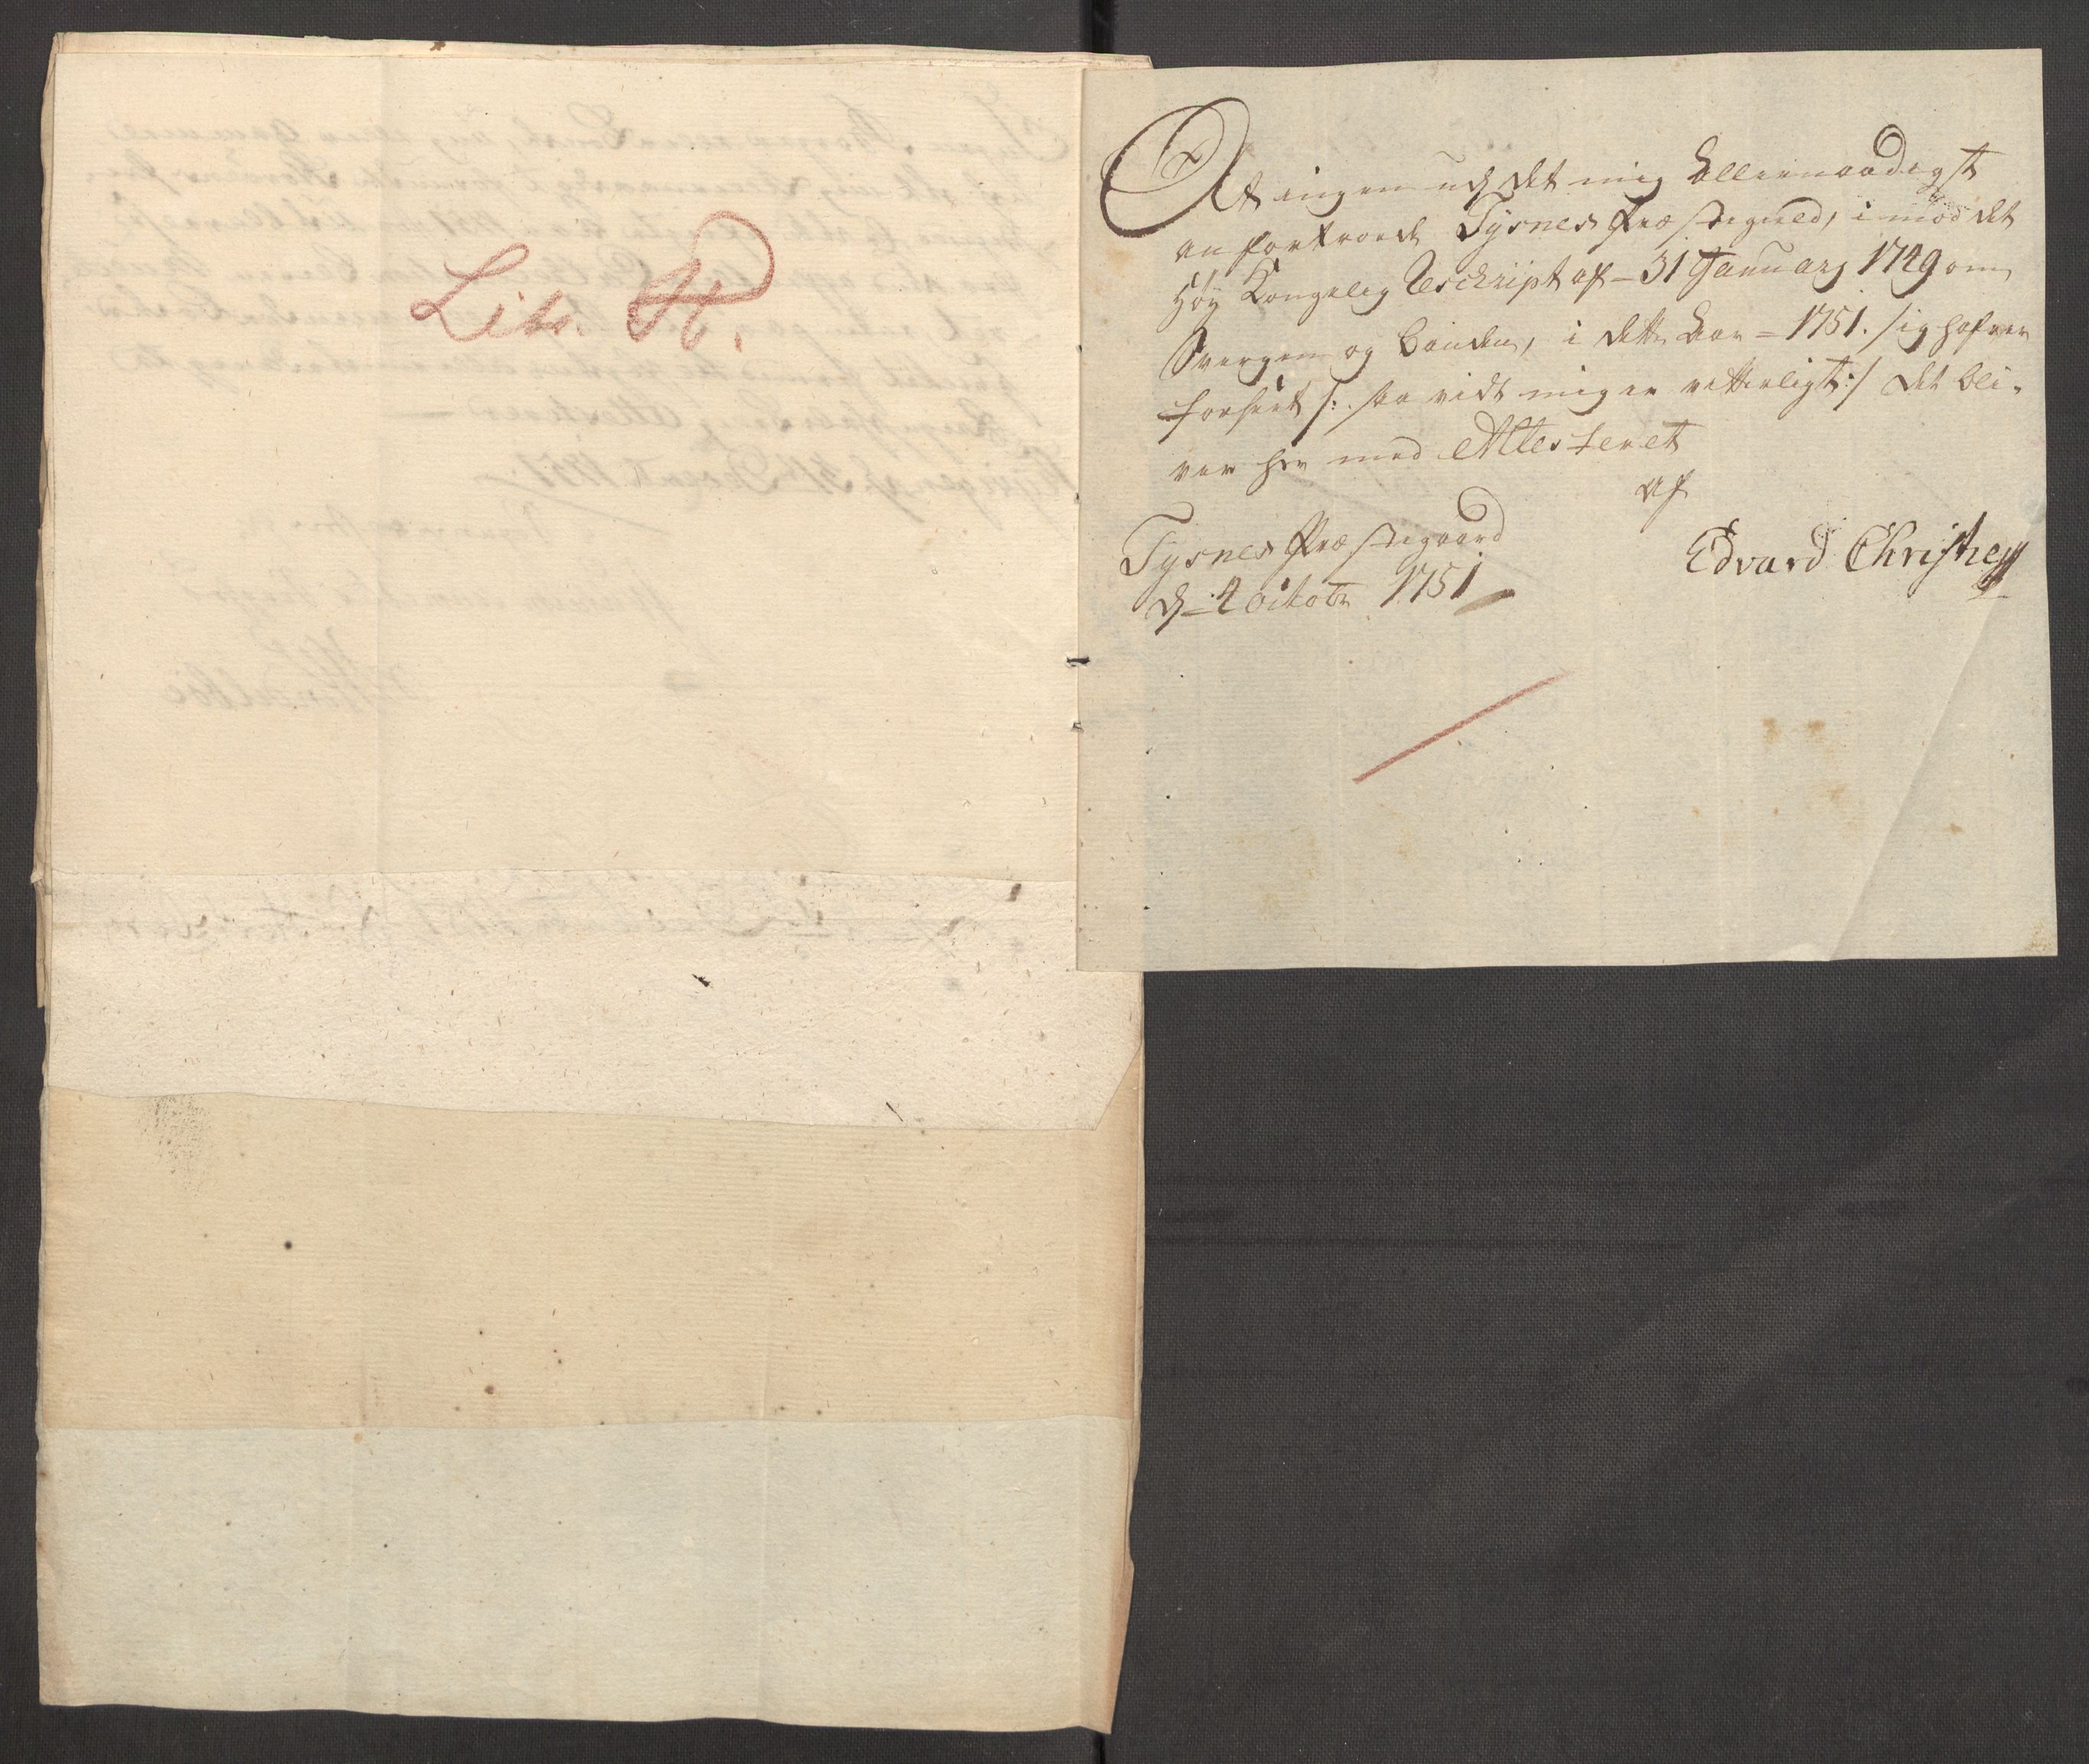 Litr. H.
At ingen udj det mig Allernaadigst
anfortroede Tysnes Præstegield, imod det
Høy Kongelig Rescript af - 31 January 1749 om
Sværgen og Banden, i dette Aar = 1751. sig hafver
forseet /: saa vidt mig er vitterligt :/ det bli-
ver her med Attesteret
af
Tysnes Præstegaard
d - 4 octobr 1751
Edvard Christie